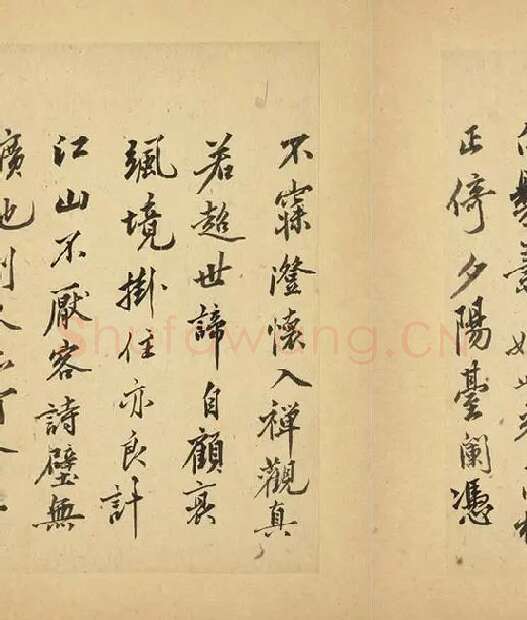 正倚夕陽臺闌憑
不寐澄懷入禪觀真
若超世諦自顧衰
颯境掛住亦良計
江山不厭客詩壁無
廣也
Shufawang.CN